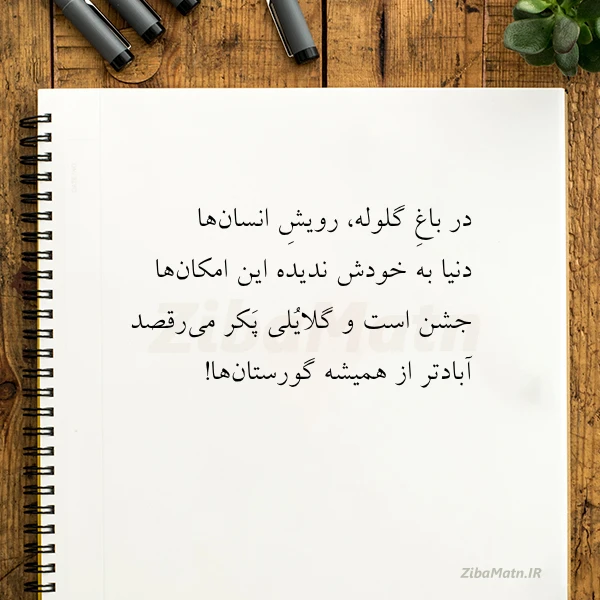 در باغِ گلوله، رویشِ انسان‌ها
دنیا به خودش ندیده این امکان‌ها
جشن است و گلایُلی پَکر می‌رقصد
آبادتر از همیشه گورستان‌ها!
ZibaMatn
ZibaMatn.IR